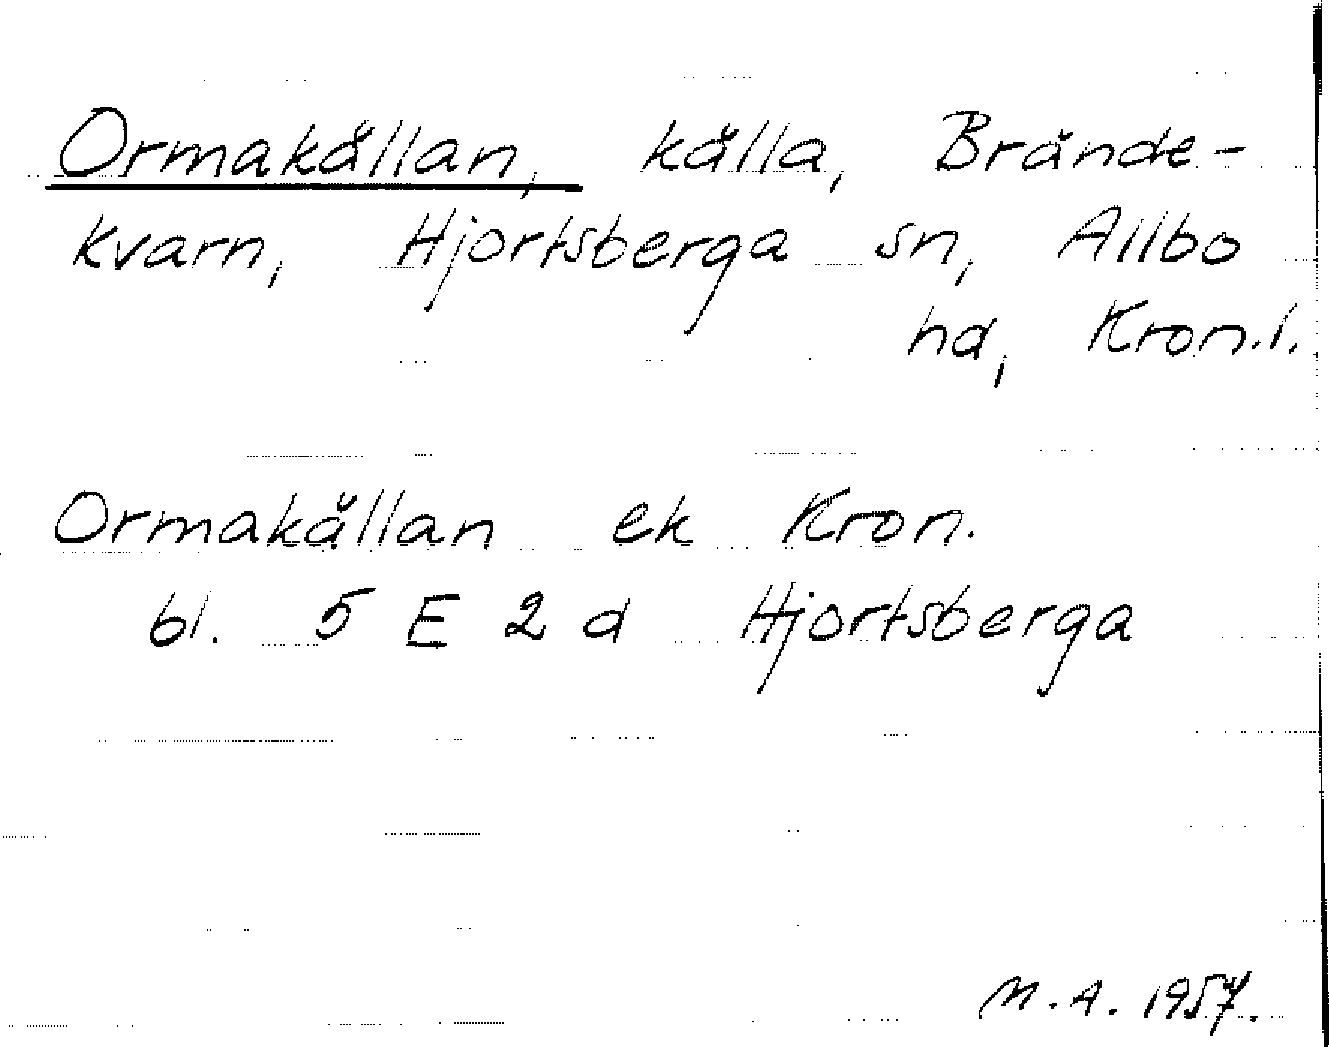 Ormakällan, källa, Brände-
kvarn, Hjortsberga sn, Allbo
hd, Kron.l.
Ormakällan ek Kron.
bl. 5 E 2 d Hjortsberga
M.A. 1957.